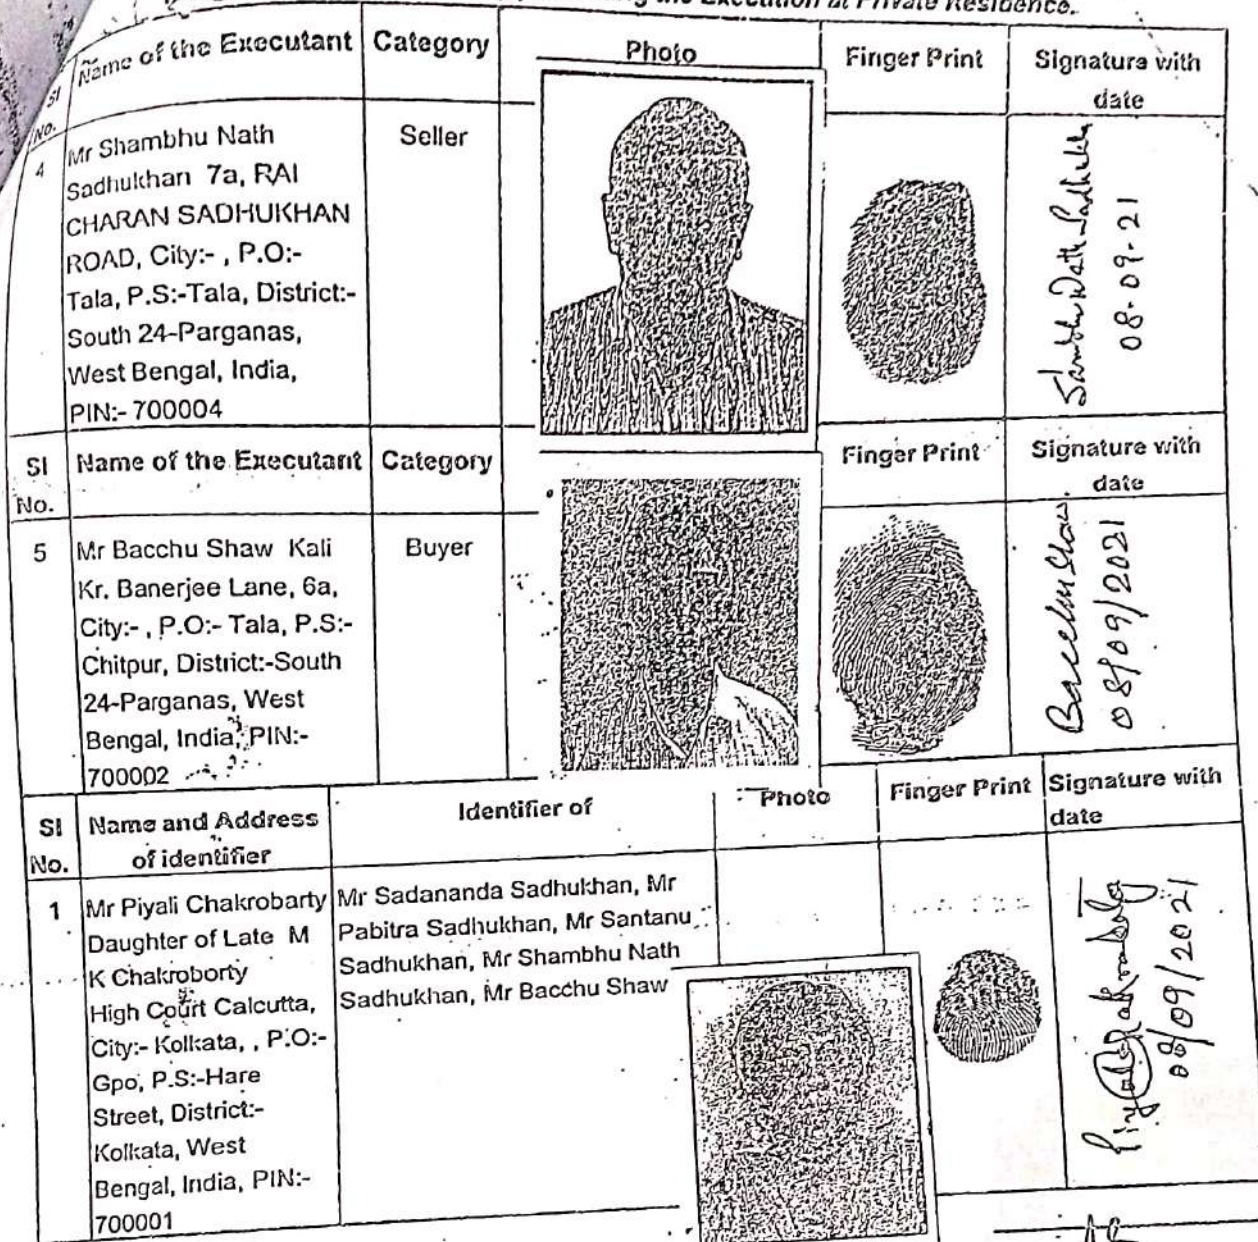 the Execution at Private Residence.
Sl No.
Name of the Executant
Category
Photo
Finger Print
Signature with
date
4
Mr Shambhu Nath
Sadhukhan 7a, RAI
CHARAN SADHUKHAN
ROAD, City:- , P.O:-
Tala, P.S:-Tala, District:-
South 24-Parganas,
West Bengal, India,
PIN:- 700004
Seller
Shambhu Nath Sadhukhan
08-09-21
Sl
No.
Name of the Executant
Category
Finger Print
Signature with
date
5
Mr Bacchu Shaw Kali
Kr. Banerjee Lane, 6a,
City:- , P.O:- Tala, P.S:-
Chitpur, District:-South
24-Parganas, West
Bengal, India, PIN:-
700002
Buyer
Bacchu Shaw.
08/09/2021
Sl
No.
Name and Address
of identifier
Identifier of
Photo
Finger Print
Signature with
date
1
Mr Piyali Chakrobarty
Daughter of Late M
K Chakroborty
High Court Calcutta,
City:- Kolkata, , P.O:-
Gpo, P.S:-Hare
Street, District:-
Kolkata, West
Bengal, India, PIN:-
700001
Mr Sadananda Sadhukhan, Mr
Pabitra Sadhukhan, Mr Santanu
Sadhukhan, Mr Shambhu Nath
Sadhukhan, Mr Bacchu Shaw
08/09/2021